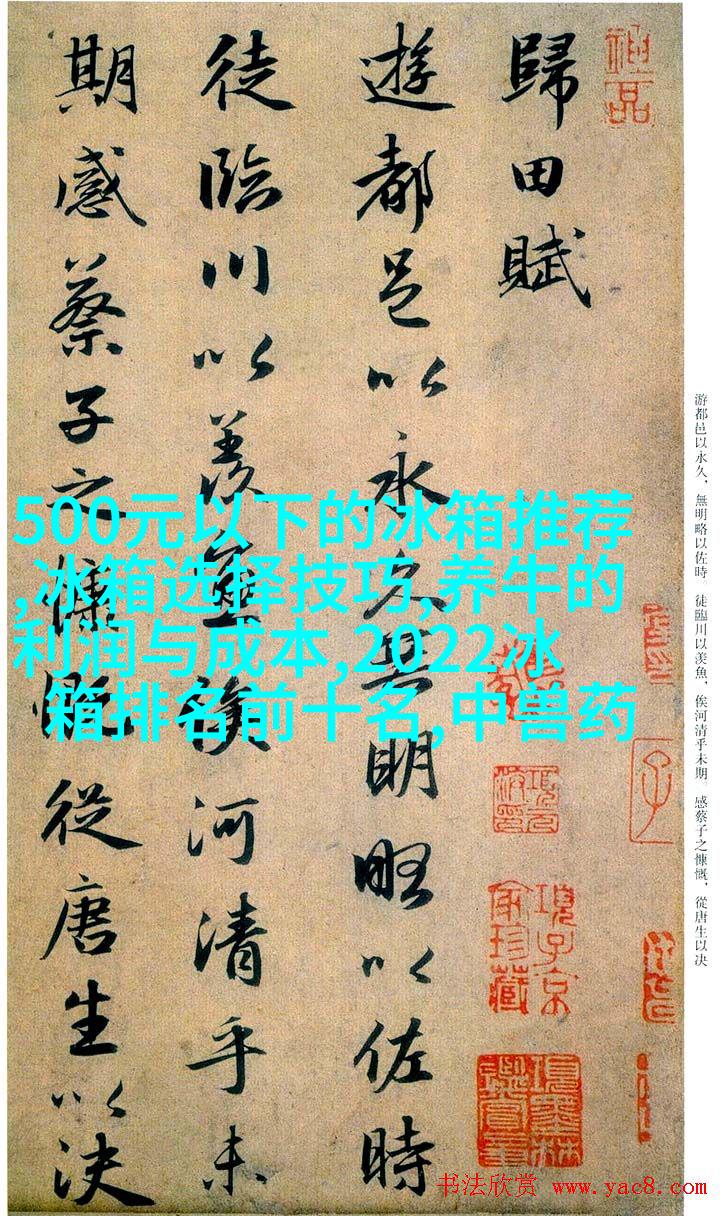 歸田賦
遊都邑以永久無明略以佐時
徒臨川以羨魚俟河清乎未
期感蔡子之慷慨從唐生以決
500元以下的冰箱推荐
,冰箱选择技巧,养牛的
利润与成本,2022冰
箱排名前十名,中兽药
游都邑以永久，無明略以佐時。徒臨川以羨魚，俟河清乎未期。感蔡子之慷慨，從唐生以决
項子京
家珍藏
书法欣赏 www.yac8.com